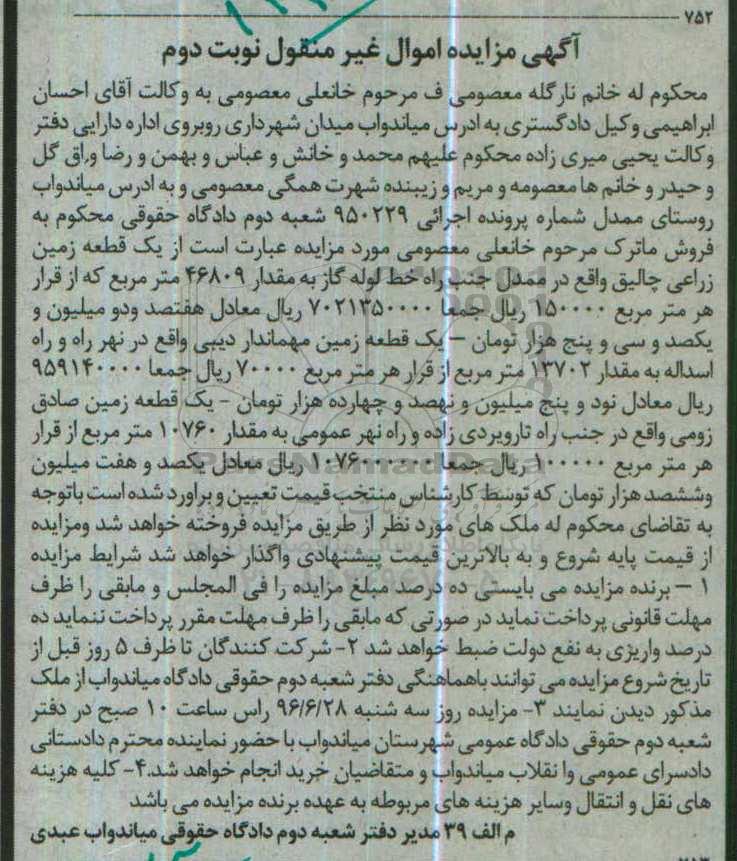 ۷۵۲
آگهی مزایده اموال غیر منقول نوبت دوم
محکوم له خانم نارگله معصومی ف مرحوم خانعلی معصومی به وکالت آقای احسان
ابراهیمی وکیل دادگستری به ادرس میاندواب میدان شهرداری روبروی اداره دارایی دفتر
وکالت یحیی میری زاده محکوم علیهم محمد و خانش و عباس و بهمن و رضا و راق گل
و حیدر و خانم ها معصومه و مریم و زیبنده شهرت همگی معصومی و به ادرس میاندواب
روستای ممدل شماره پرونده اجرائی ۹۵۰۲۲۹ شعبه دوم دادگاه حقوقی محکوم به
فروش ماترک مرحوم خانعلی معصومی مورد مزایده عبارت است از یک قطعه زمین
زراعی چالیق واقع در ممدل جنب راه خط لوله گاز به مقدار ۴۶۸۰۹ متر مربع که از قرار
هر متر مربع ۱۵۰۰۰۰ ریال جمعا ۷۰۲۱۳۵۰۰۰۰ ریال معادل هفتصد ودو میلیون و
یکصد و سی و پنج هزار تومان – یک قطعه زمین مهماندار دیبی واقع در نهر راه و راه
اسداله به مقدار ۱۳۷۰۲ متر مربع از قرار هر متر مربع ۷۰۰۰۰ ریال جمعا ۹۵۹۱۴۰۰۰۰
ریال معادل نود و پنج میلیون و نهصد و چهارده هزار تومان – یک قطعه زمین صادق
زومی واقع در جنب راه تارویردی زاده و راه نهر عمومی به مقدار ۱۰۷۶۰ متر مربع از قرار
هر متر مربع ۱۰۰۰۰۰ ریال جمعا ۱۰۷۶۰۰۰۰۰۰ ریال معادل یکصد و هفت میلیون
وششصد هزار تومان که توسط کارشناس منتخب قیمت تعیین و براورد شده است باتوجه
به تقاضای محکوم له ملک های مورد نظر از طریق مزایده فروخته خواهد شد ومزایده
از قیمت پایه شروع و به بالاترین قیمت پیشنهادی واگذار خواهد شد شرایط مزایده
۱ – برنده مزایده می بایستی ده درصد مبلغ مزایده را فی المجلس و مابقی را ظرف
مهلت قانونی پرداخت نماید در صورتی که مابقی را ظرف مهلت مقرر پرداخت ننماید ده
درصد واریزی به نفع دولت ضبط خواهد شد ۲- شرکت کنندگان تا ظرف ۵ روز قبل از
تاریخ شروع مزایده می توانند باهماهنگی دفتر شعبه دوم حقوقی دادگاه میاندواب از ملک
مذکور دیدن نمایند ۳- مزایده روز سه شنبه ۹۶/۶/۲۸ راس ساعت ۱۰ صبح در دفتر
شعبه دوم حقوقی دادگاه عمومی شهرستان میاندواب با حضور نماینده محترم دادستانی
دادسرای عمومی وا نقلاب میاندواب و متقاضیان خرید انجام خواهد شد.۴- کلیه هزینه
های نقل و انتقال وسایر هزینه های مربوطه به عهده برنده مزایده می باشد
م الف ۳۹ مدیر دفتر شعبه دوم دادگاه حقوقی میاندواب عبدی